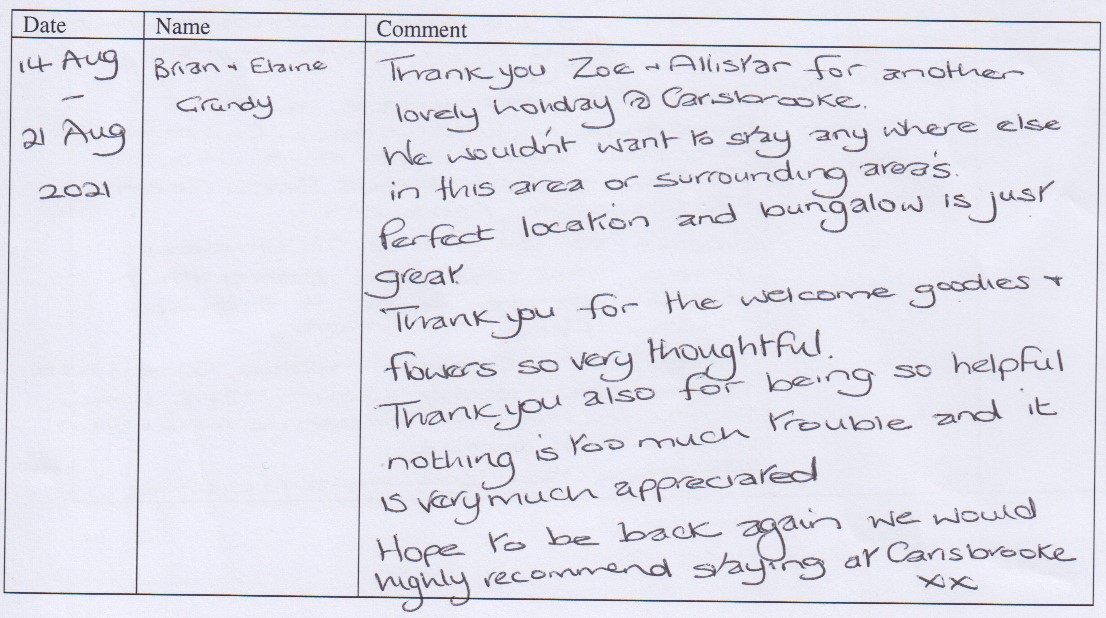 Date Name Comment
14 Aug
–
21 Aug
2021
Brian + Elaine
Grundy
Thank you Zoe + Allistar for another
lovely holiday @ Carisbrooke.
We wouldn't want to stay any where else
in this area or surrounding area's.
Perfect location and bungalow is just
great.
Thank you for the welcome goodies +
flowers so very thoughtful.
Thank you also for being so helpful
nothing is too much trouble and it
is very much appreciated
Hope to be back again we would
highly recommend staying at Carisbrooke
xx